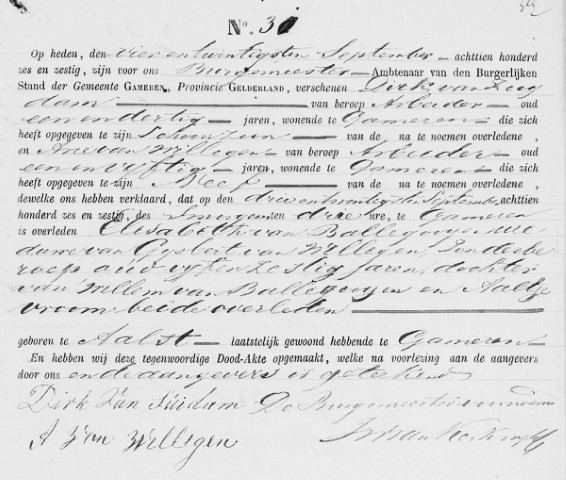 No. 31
Op heden, den vier en twintigsten September achttien honderd
zes en zestig, zijn voor ons Burgemeester Ambtenaar van den Burgerlijken
Stand der Gemeente GAMEREN, Provincie GELDERLAND, verschenen Dirk van Zuy
dam van beroep Arbeider oud
een en dertig jaren, wonende te Gameren die zich
heeft opgegeven te zijn Schoonzoon van de na te noemen overledene ,
en Arie van Willegen van beroep Arbeider oud
een en vyftig jaren, wonende te Gameren die zich
heeft opgegeven te zijn Neef van de na te noemen overledene ,
dewelke ons hebben verklaard, dat op den drie en twintigsten September achttien
honderd zes en zestig, des smorgens ten drie ure, te Gameren
is overleden Elisabeth van Ballegooyen we
duwe van Gysbert van Willegen, zonder be
roep oud vyf en zestig jaren, dochter
van Willem van Ballegooyen en Aaltje
Vroom beide overleden
geboren te Aalst laatstelijk gewoond hebbende te Gameren
En hebben wij deze tegenwoordige Dood-Akte opgemaakt, welke na voorlezing aan de aangevers
door ons en de aangevers is geteekend
Dirk Van Suidam De Burgemeester voornoemd
A Van Willegen